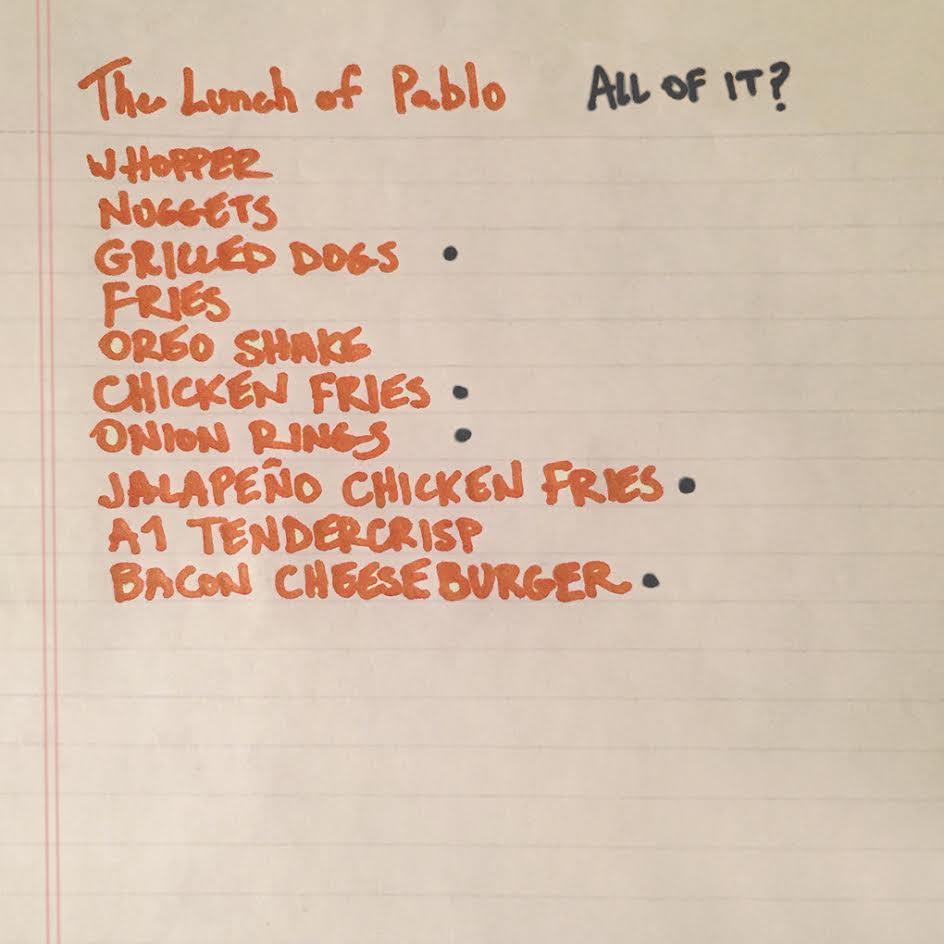 The Lunch of Pablo ALL OF IT?
WHOPPER
NUGGETS
GRILLED DOGS •
FRIES
OREO SHAKE
CHICKEN FRIES •
ONION RINGS •
JALAPEÑO CHICKEN FRIES •
A1 TENDERCRISP
BACON CHEESEBURGER •